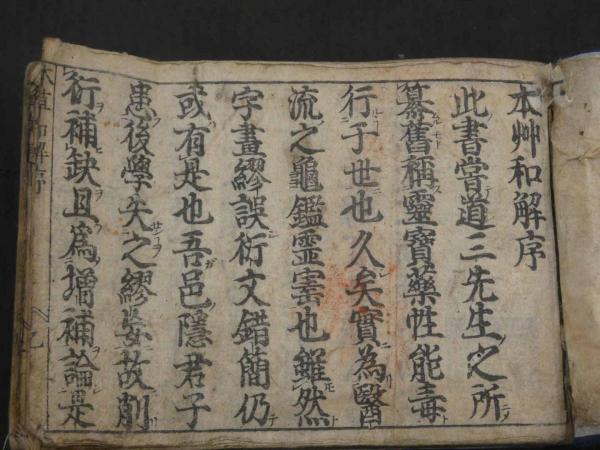 本艸和解序
此書嘗道三先生之所
纂舊稱靈寶藥性能毒
行于世也久矣實為醫
流之龜鑑靈宝也雖然
字畫繆誤衍文錯簡仍
或有是也吾邑隱君子
患後學矢之繆妄故削
衍補缺且為增補論是